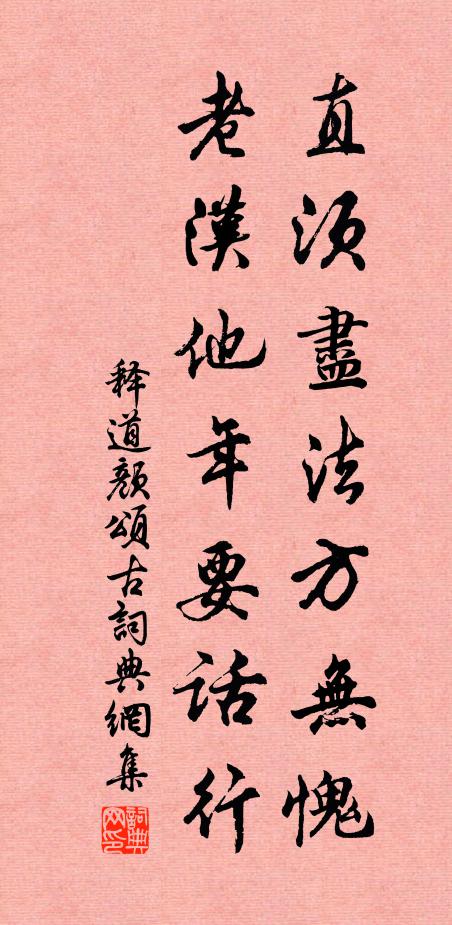 直須盡法方無愧
老漢他年要話行
释道颜頌古詞典網集
詞典网印